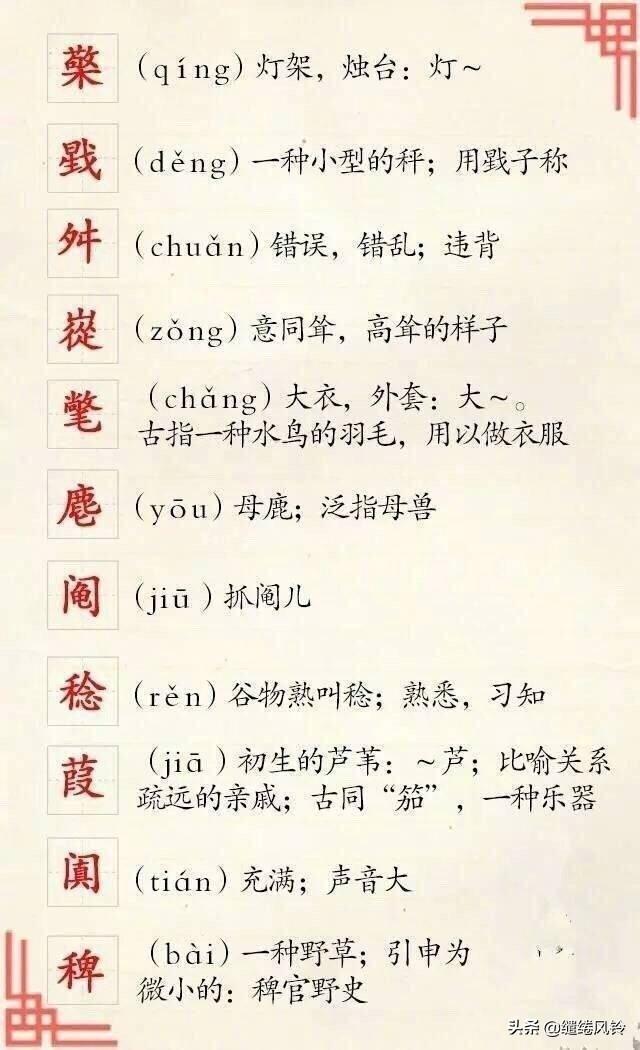 檠 (qíng)灯架，烛台：灯～
戥 (děng)一种小型的秤；用戥子称
舛 (chuǎn)错误，错乱；违背
嵸 (zǒng)意同耸，高耸的样子
氅 (chǎng)大衣，外套：大～。
古指一种水鸟的羽毛，用以做衣服
麀 (yōu)母鹿；泛指母兽
阄 (jiū)抓阄儿
稔 (rěn)谷物熟叫稔；熟悉，习知
葭 (jiā)初生的芦苇：～芦；比喻关系
疏远的亲戚；古同“笳”，一种乐器
阗 (tián)充满；声音大
稗 (bài)一种野草；引申为
微小的：稗官野史
头条 @缱绻风铃